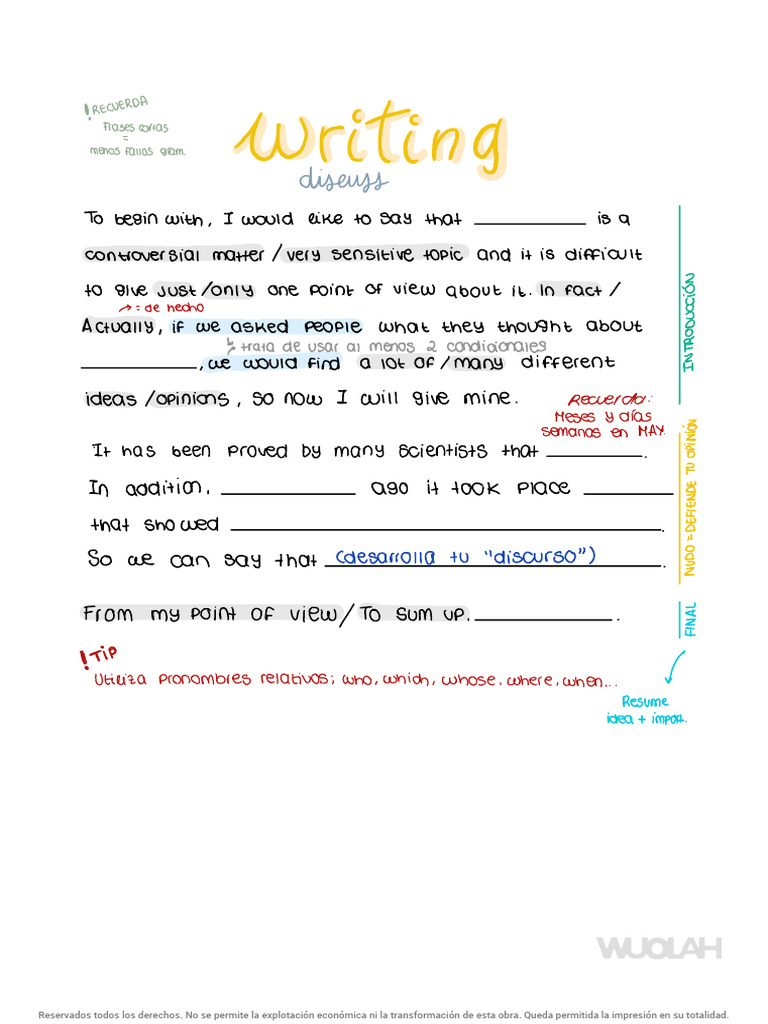 ! RECUERDA
frases cortas
=
menos fallos gram.
Writing
discuss
To begin with, I would like to say that __________ is a
controversial matter / very sensitive topic and it is difficult
to give just/only one point of view about it. In fact /
→ = de hecho
Actually, if we asked people what they thought about
↳ trata de usar al menos 2 condicionales
__________, we would find a lot of / many different
ideas /opinions, so now I will give mine.
Recuerda:
Meses y días
semanas en MAY.
INTRODUCCIÓN
It has been proved by many scientists that __________.
In addition, __________ ago it took place __________
that showed __________.
So we can say that (desarrolla tu "discurso").
NUDO = DEFIENDE TU OPINIÓN
From my point of view/ To sum up, __________.
FINAL
! TIP
Utiliza pronombres relativos; who, which, whose, where, when...
Resume
idea + import.
WUOLAH
Reservados todos los derechos. No se permite la explotación económica ni la transformación de esta obra. Queda permitida la impresión en su totalidad.